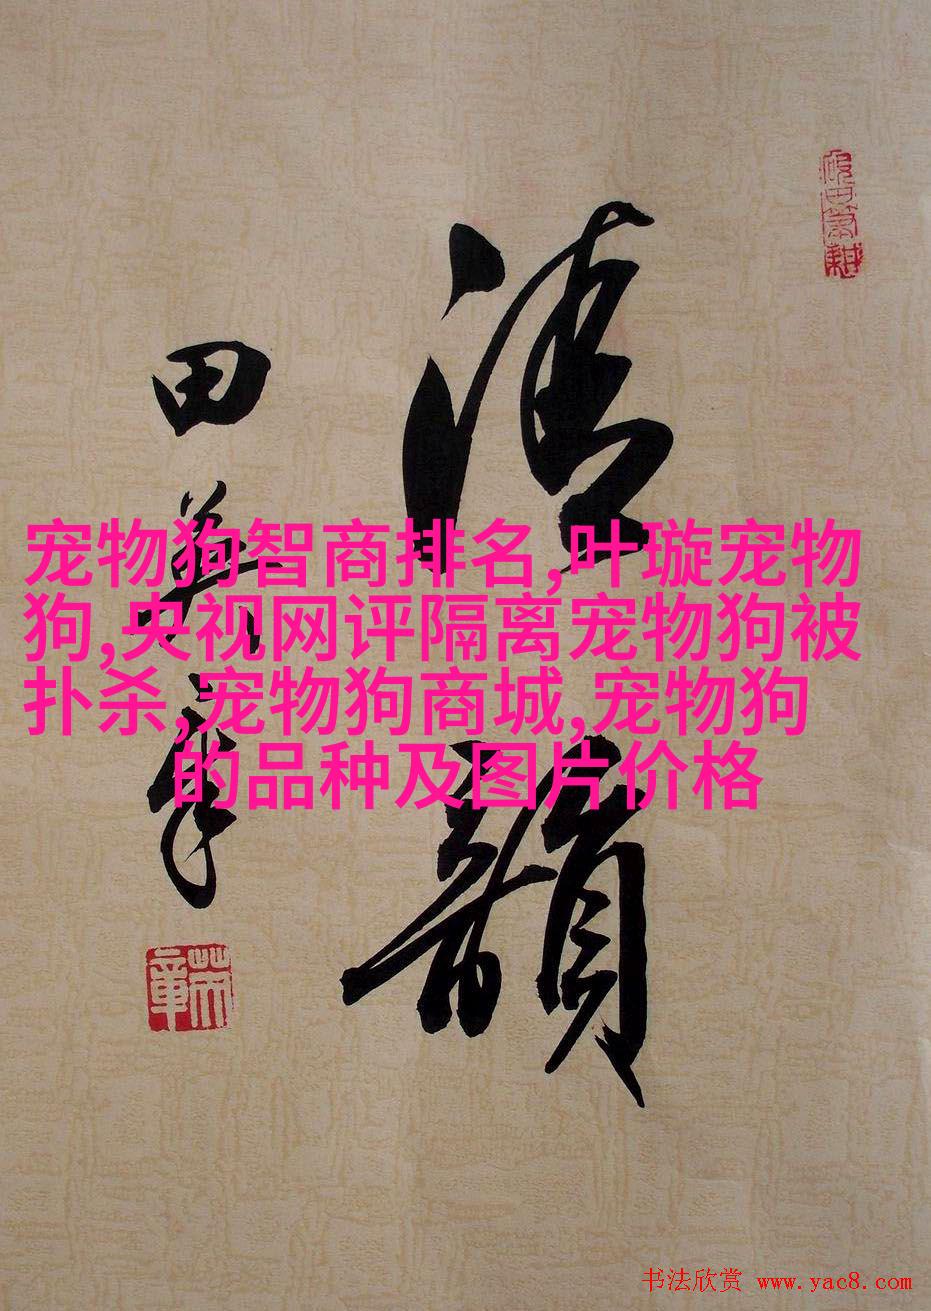 清韻
田英章
宠物狗智商排名,叶璇宠物
狗,央视网评隔离宠物狗被
扑杀,宠物狗商城,宠物狗
的品种及图片价格
书法欣赏 www.yac8.com